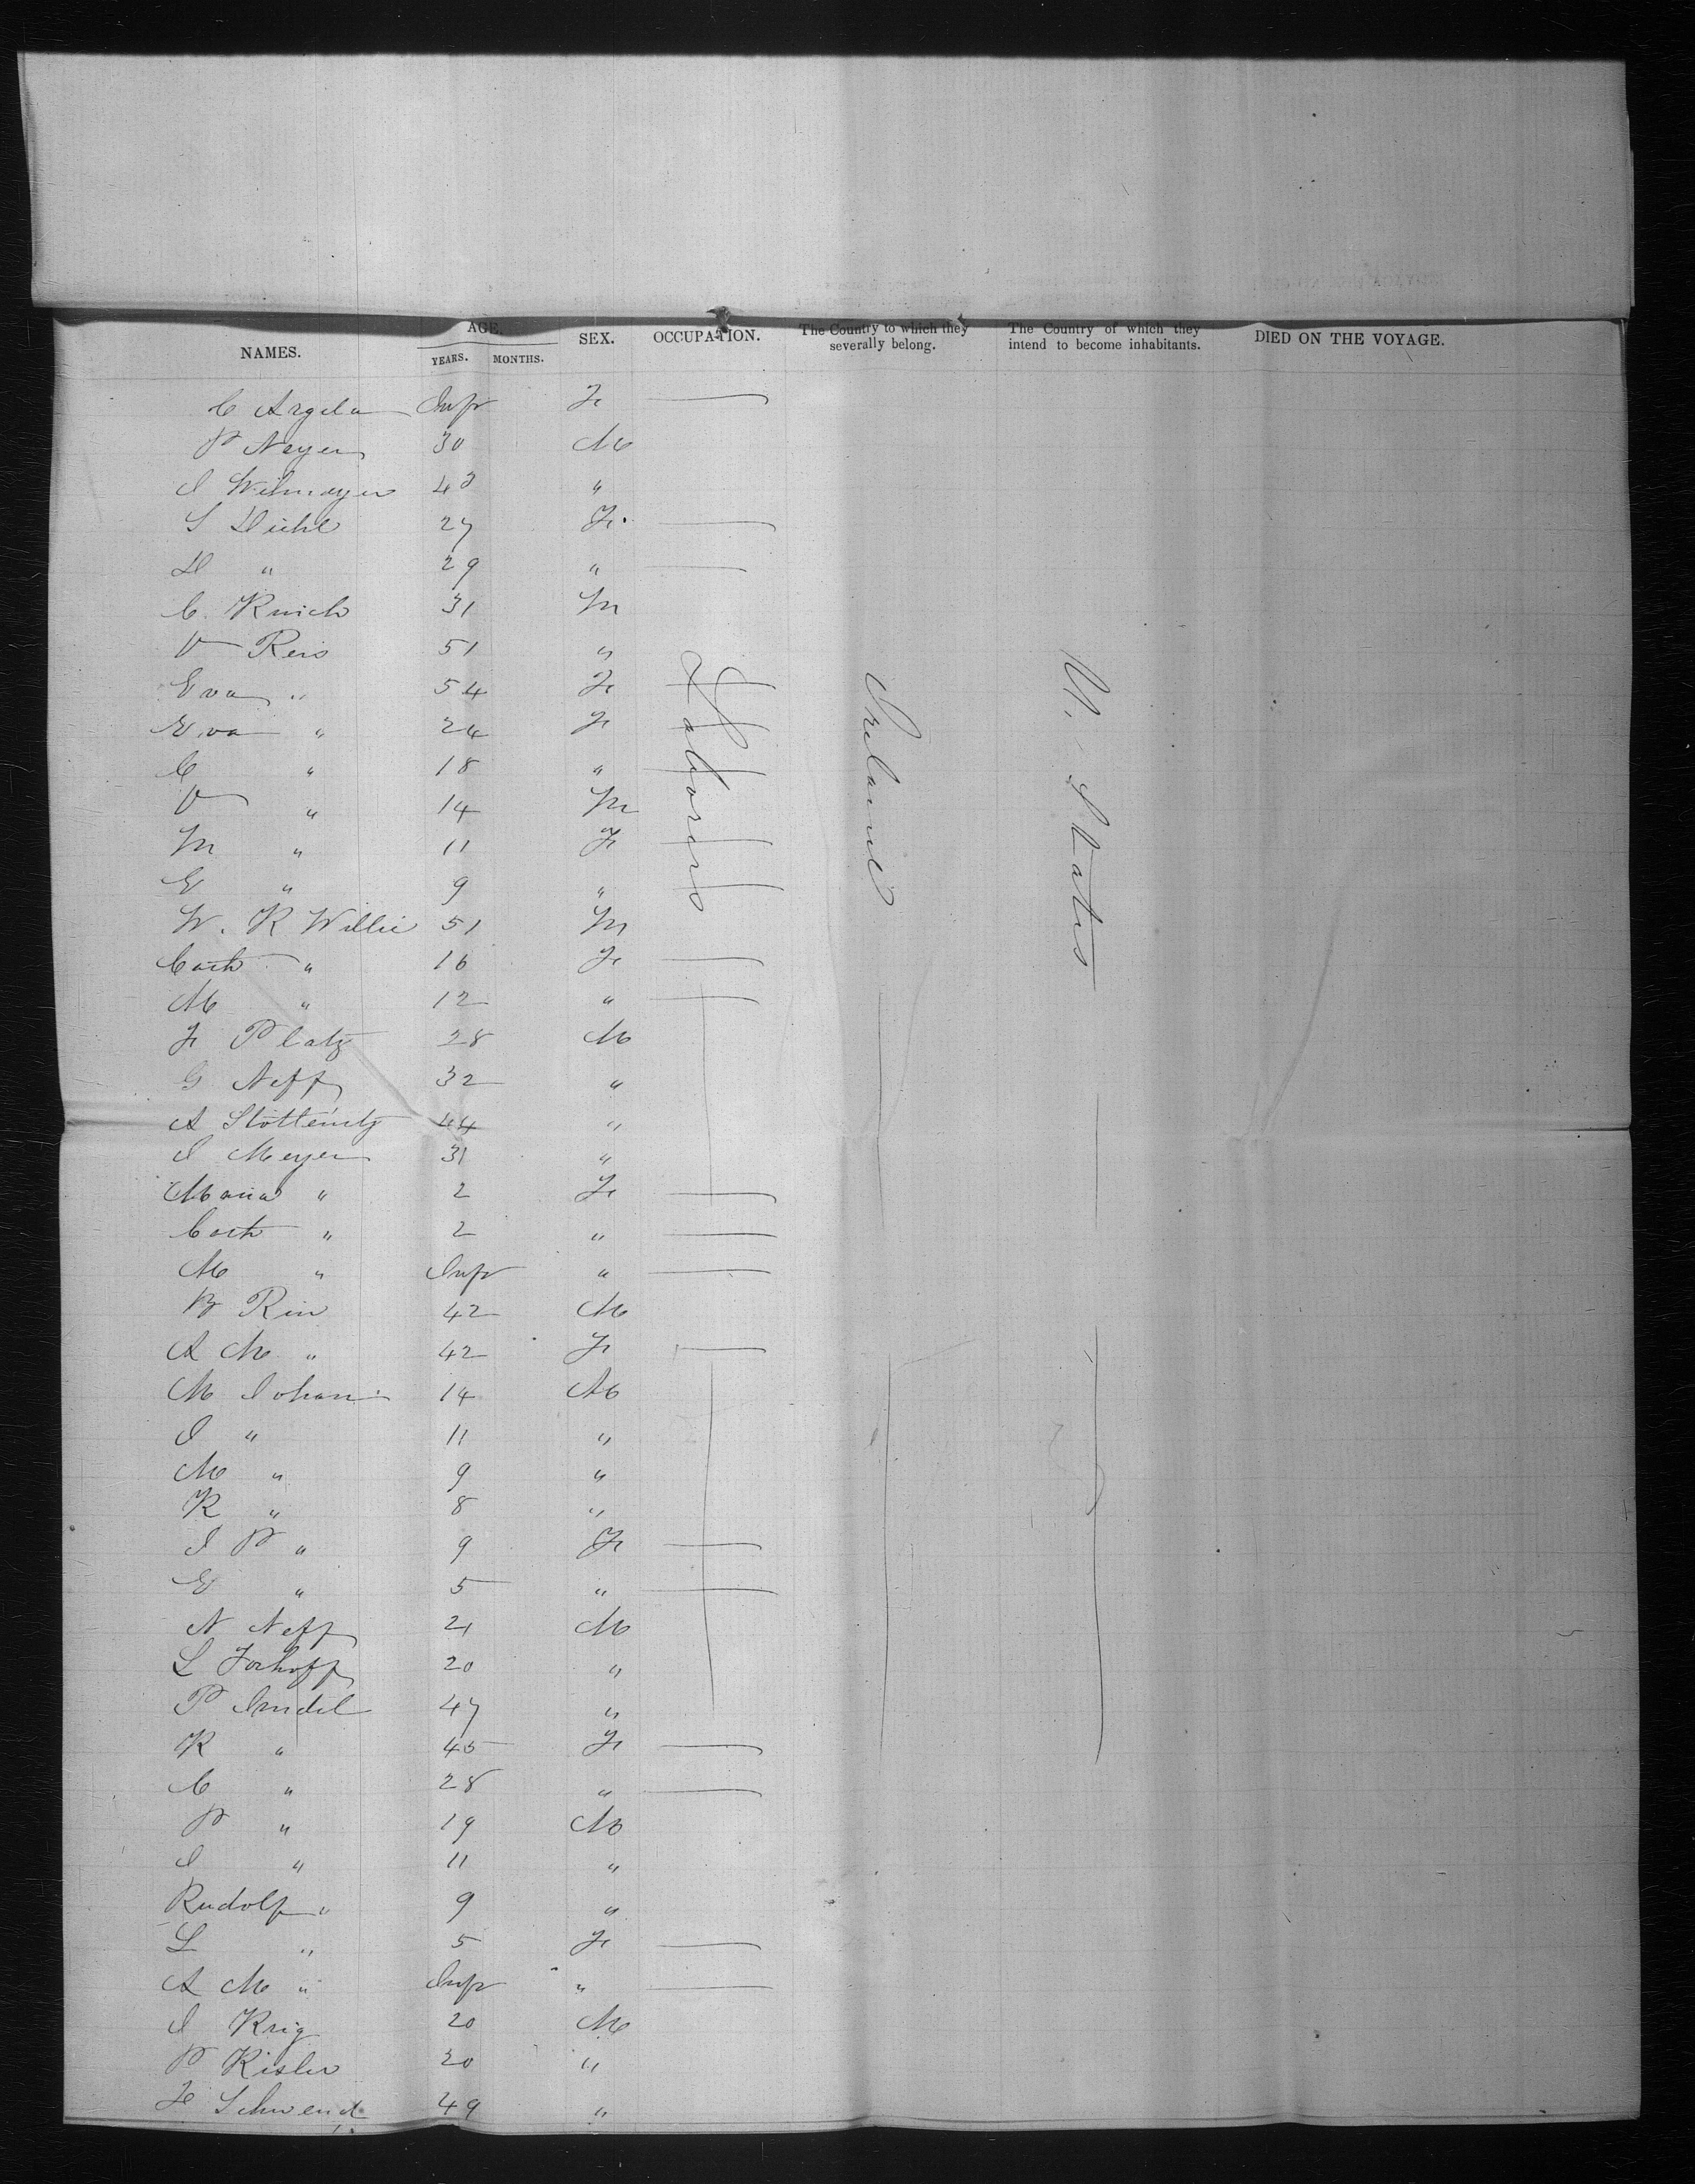 NAMES. AGE. YEARS. MONTHS. SEX. OCCUPATION. The Country to which they severally belong. The Country of which they intend to become inhabitants. DIED ON THE VOYAGE.
C Argela Inft F
P Neyer 30 M
I 43 "
S Diehl 27 F
D " 29 "
C. Knich 31 M
V Reis 51 "
Eva " 54 F
Eva " 24 F
C " 18 "
V " 14 M
M " 11 F
E " 9 "
Laborers Ireland U. States
W. K Willie 51 M
Cath " 16 F
M " 12 "
F Platz 28 M
G Neff 32 "
A 44 "
I Meyer 31 "
Maria " 2 F
Cath " 2 "
M " Inft "
B Rin 42 M
A M " 42 F
M Johan 14 M
I " 11 "
M " 9 "
K " 8 "
I P " 9 F
E " 5 "
N Neff 21 M
L Forhoff 20 "
P Imdel 47 "
K " 45 F
C " 28 "
P " 19 M
I " 11 "
Rudolf " 9 "
L " 5 F
A M " Inft "
I Krig 20 M
P Kisler 20 "
F Schwend 49 "